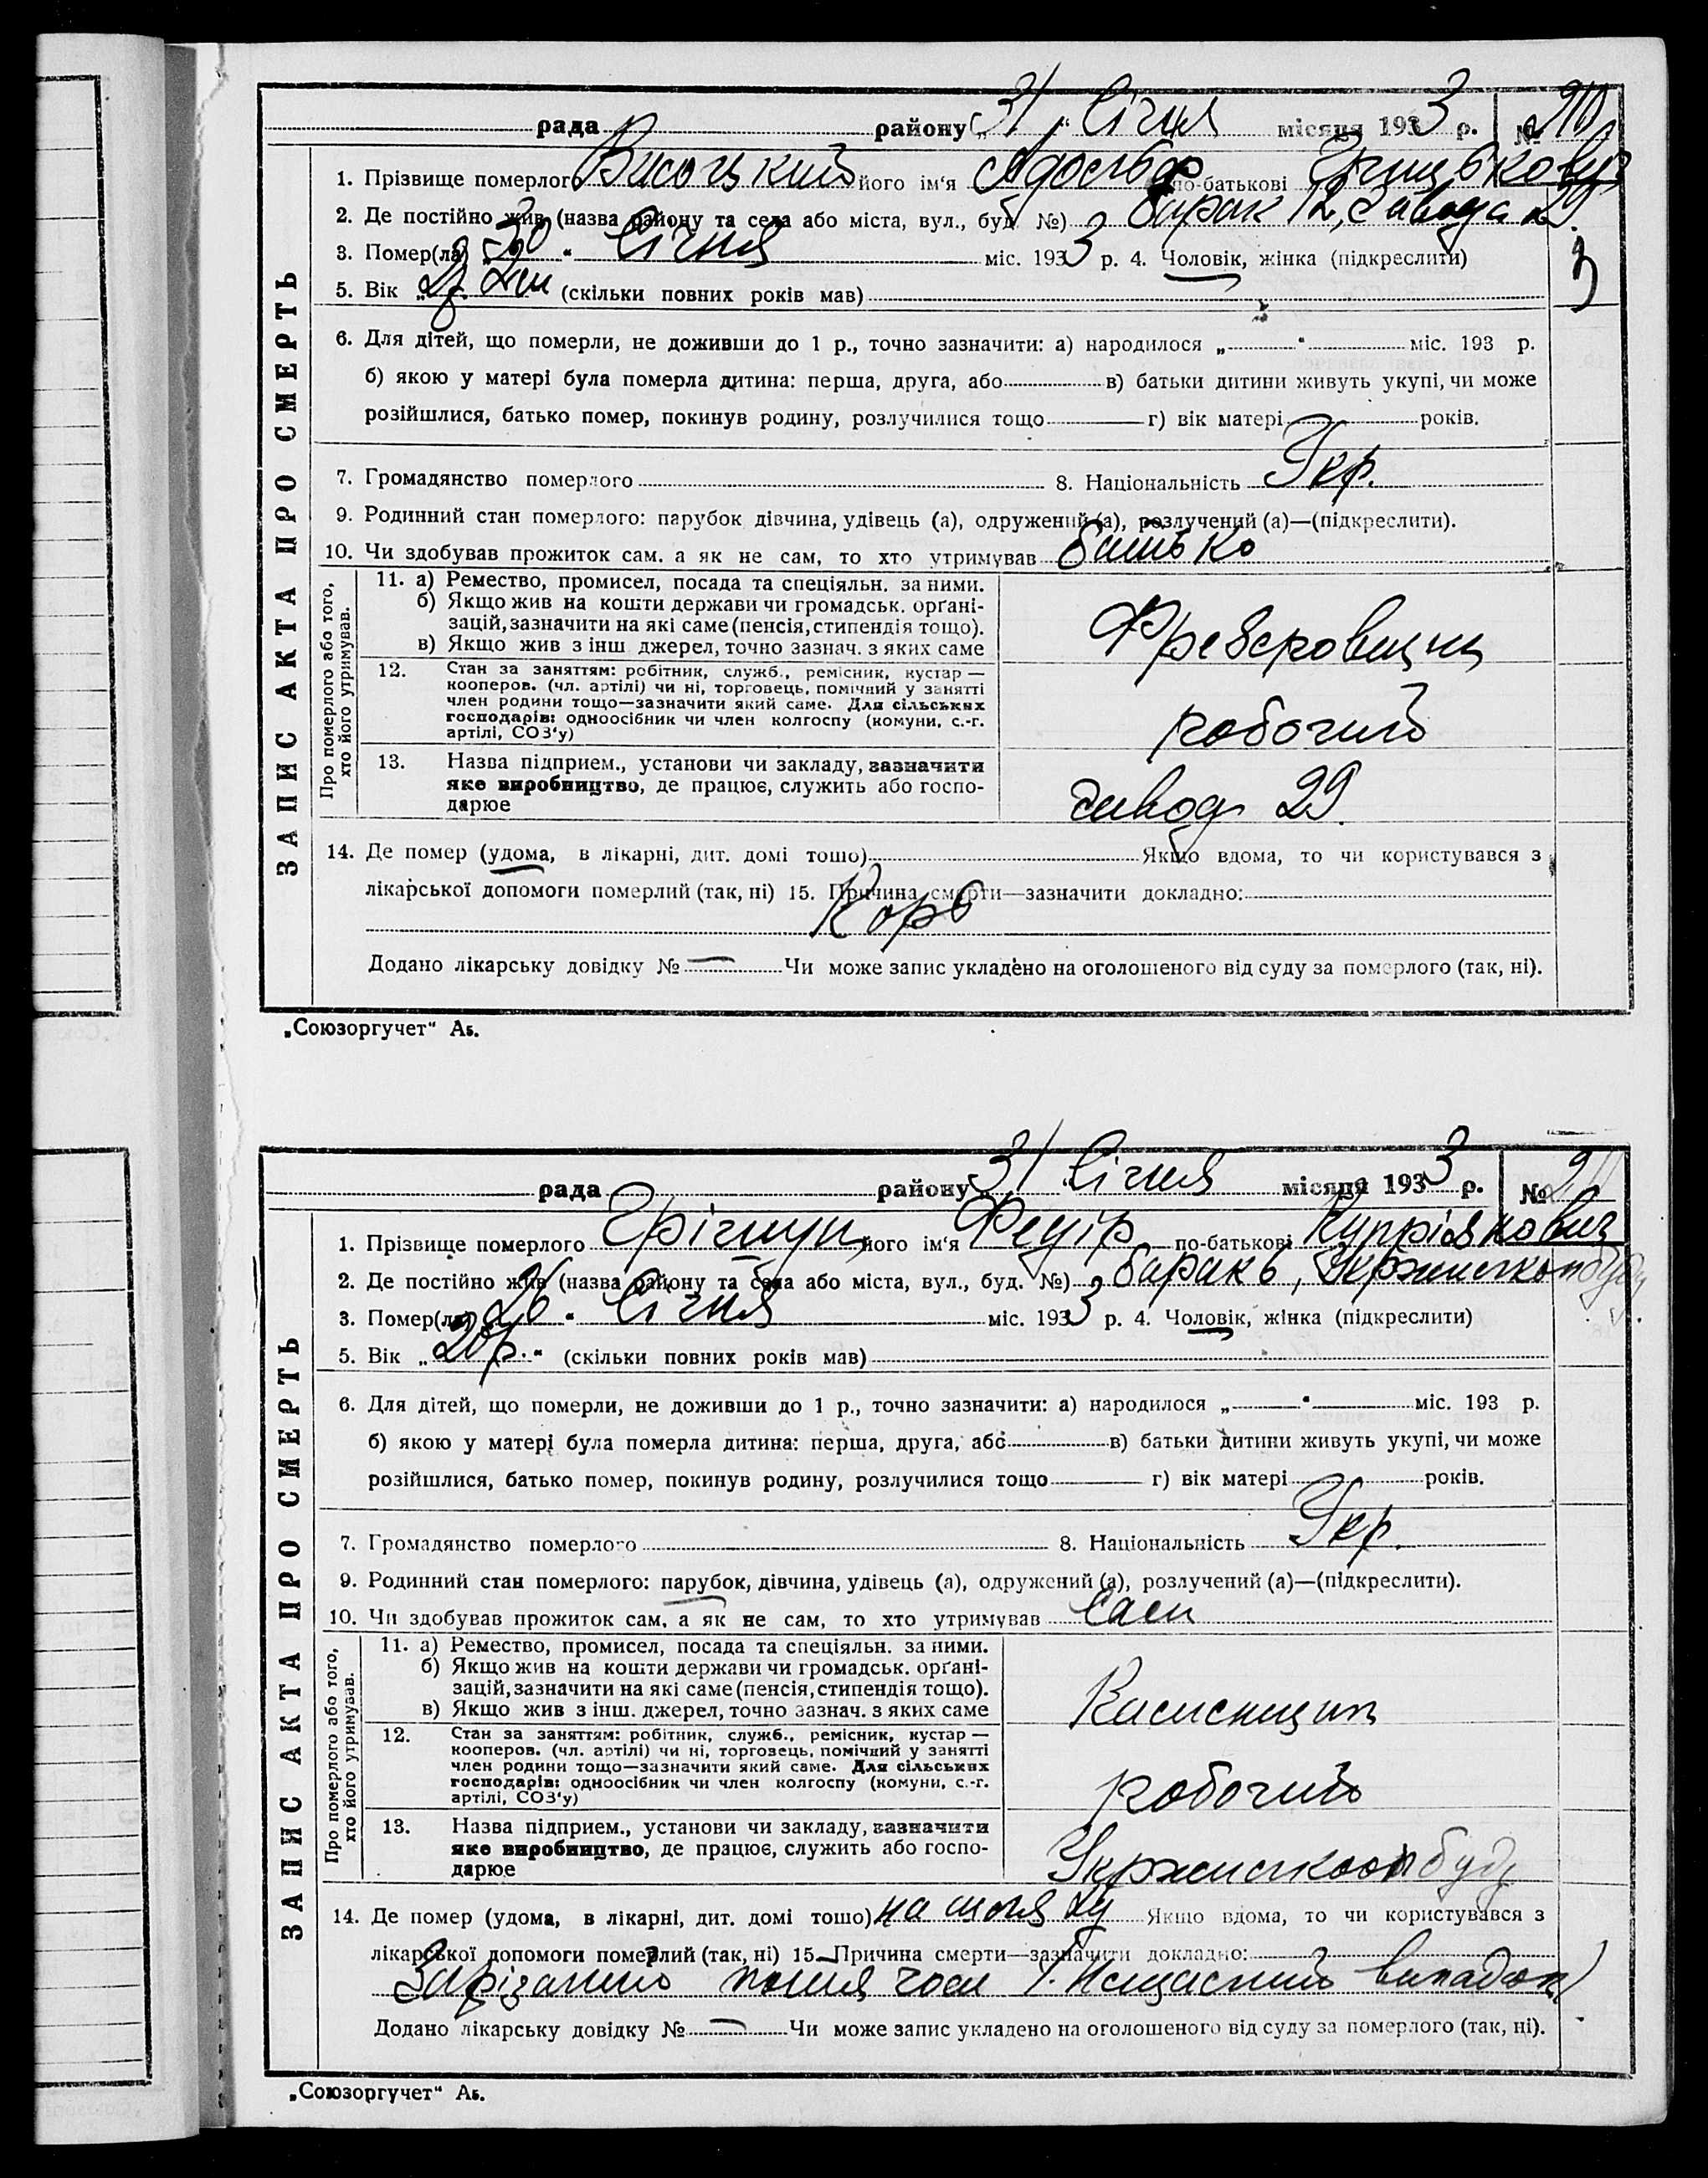 рада району „31“ Січня місяця 1933 р. № 210
1. Прізвище померлого Висоцький його ім'я Адольф по-батькові
2. Де постійно жив (назва району та села або міста, вул., буд. №) Барак 12, завода 29
3. Помер(ла) „30“ Січня міс. 1933 р. 4. Чоловік, жінка (підкреслити)
5. Вік „ “ (скільки повних років мав)
6. Для дітей, що померли, не доживши до 1 р., точно зазначити: а) народилося „ “ міс. 193 р.
б) якою у матері була померла дитина: перша, друга, або в) батьки дитини живуть укупі, чи може
розійшлися, батько помер, покинув родину, розлучилися тощо г) вік матері років.
7. Громадянство померлого 8. Національність Укр.
9. Родинний стан померлого: парубок дівчина, удівець (а), одружений (а), розлучений (а)—(підкреслити).
10. Чи здобував прожиток сам. а як не сам, то хто утримував батько
ЗАПИС АКТА ПРО СМЕРТЬ
Про померлого або того, хто його утримував.
11. а) Ремество, промисел, посада та спеціяльн. за ними.
б) Якщо жив на кошти держави чи громадськ. орґані-
зацій, зазначити на які саме (пенсія, стипендія тощо).
в) Якщо жив з інш джерел, точно зазнач. з яких саме
Фрезеровщик
12. Стан за заняттям: робітник, служб., ремісник, кустар —
кооперов. (чл. артілі) чи ні, торговець, помічний у занятті
член родини тощо—зазначити який саме. Для сільських
господарів: одноосібник чи член колгоспу (комуни, с.-г.
артілі, СОЗ'у)
робочий
13. Назва підприєм., установи чи закладу, зазначити
яке виробництво, де працює, служить або госпо-
дарює
завод 29.
14. Де помер (удома, в лікарні, дит. домі тощо) Якщо вдома, то чи користувався з
лікарської допомоги померлий (так, ні) 15. Причина смерти—зазначити докладно:
Корь
Додано лікарську довідку № — Чи може запис укладено на оголошеного від суду за померлого (так, ні).
„Союзоргучет“ А5.
рада району „31“ Січня місяця 1933 р. № 211
1. Прізвище померлого його ім'я Федір по-батькові Купріянович
2. Де постійно жив (назва району та села або міста, вул., буд. №) Барак 6,
3. Помер(ла) „26“ Січня міс. 1933 р. 4. Чоловік, жінка (підкреслити)
5. Вік „20 р.“ (скільки повних років мав)
6. Для дітей, що померли, не доживши до 1 р., точно зазначити: а) народилося „ “ міс. 193 р.
б) якою у матері була померла дитина: перша, друга, або в) батьки дитини живуть укупі, чи може
розійшлися, батько помер, покинув родину, розлучилися тощо г) вік матері років.
7. Громадянство померлого 8. Національність Укр.
9. Родинний стан померлого: парубок, дівчина, удівець (а), одружений (а), розлучений (а)—(підкреслити).
10. Чи здобував прожиток сам, а як не сам, то хто утримував Сам
ЗАПИС АКТА ПРО СМЕРТЬ
Про померлого або того, хто його утримував.
11. а) Ремество, промисел, посада та спеціяльн. за ними.
б) Якщо жив на кошти держави чи громадськ. орґані-
зацій, зазначити на які саме (пенсія, стипендія тощо).
в) Якщо жив з інш. джерел, точно зазнач. з яких саме
12. Стан за заняттям: робітник, служб., ремісник, кустар —
кооперов. (чл. артілі) чи ні, торговець, помічний у занятті
член родини тощо—зазначити який саме. Для сільських
господарів: одноосібник чи член колгоспу (комуни, с.-г.
артілі, СОЗ'у)
робочий
13. Назва підприєм., установи чи закладу, зазначити
яке виробництво, де працює, служить або госпо-
дарює
14. Де помер (удома, в лікарні, дит. домі тощо) на шляху Якщо вдома, то чи користувався з
лікарської допомоги померлий (так, ні) 15. Причина смерти—зазначити докладно:
Зарізаний (Нещасний випадок)
Додано лікарську довідку № — Чи може запис укладено на оголошеного від суду за померлого (так, ні).
„Союзоргучет“ А5.